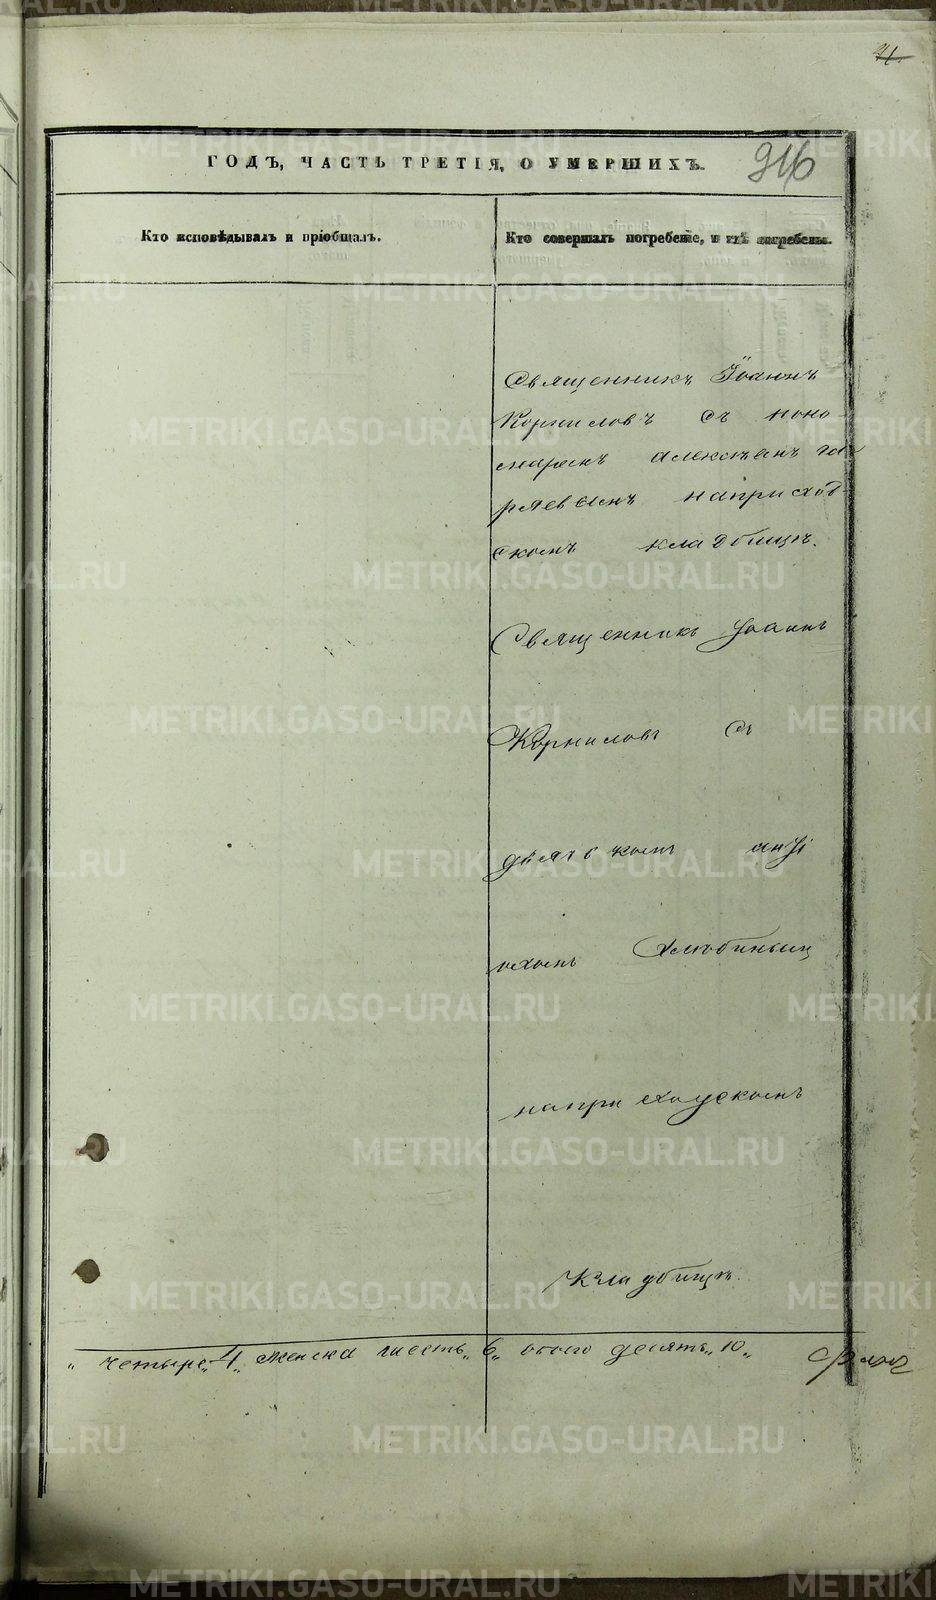 ГОДЪ, ЧАСТЬ ТРЕТІЯ, О УМЕРШИХЪ.
916
Кто исповѣдывалъ и пріобщалъ.
Кто совершалъ погребеніе, и гдѣ погребены.
Священникъ Іоаннъ
Корниловъ съ поно-
маремъ алексѣемъ
напри сход-
скомъ кладбищѣ.
Священникъ Іоаннъ
Корниловъ съ
дьячькомъ анті
охомъ Хлюбинымъ
напри сходскомъ
Кладбищѣ.
„четыре„ 4„ женска шесть„ 6„ обоего десять„ 10„
METRIKI.GASO-URAL.RU